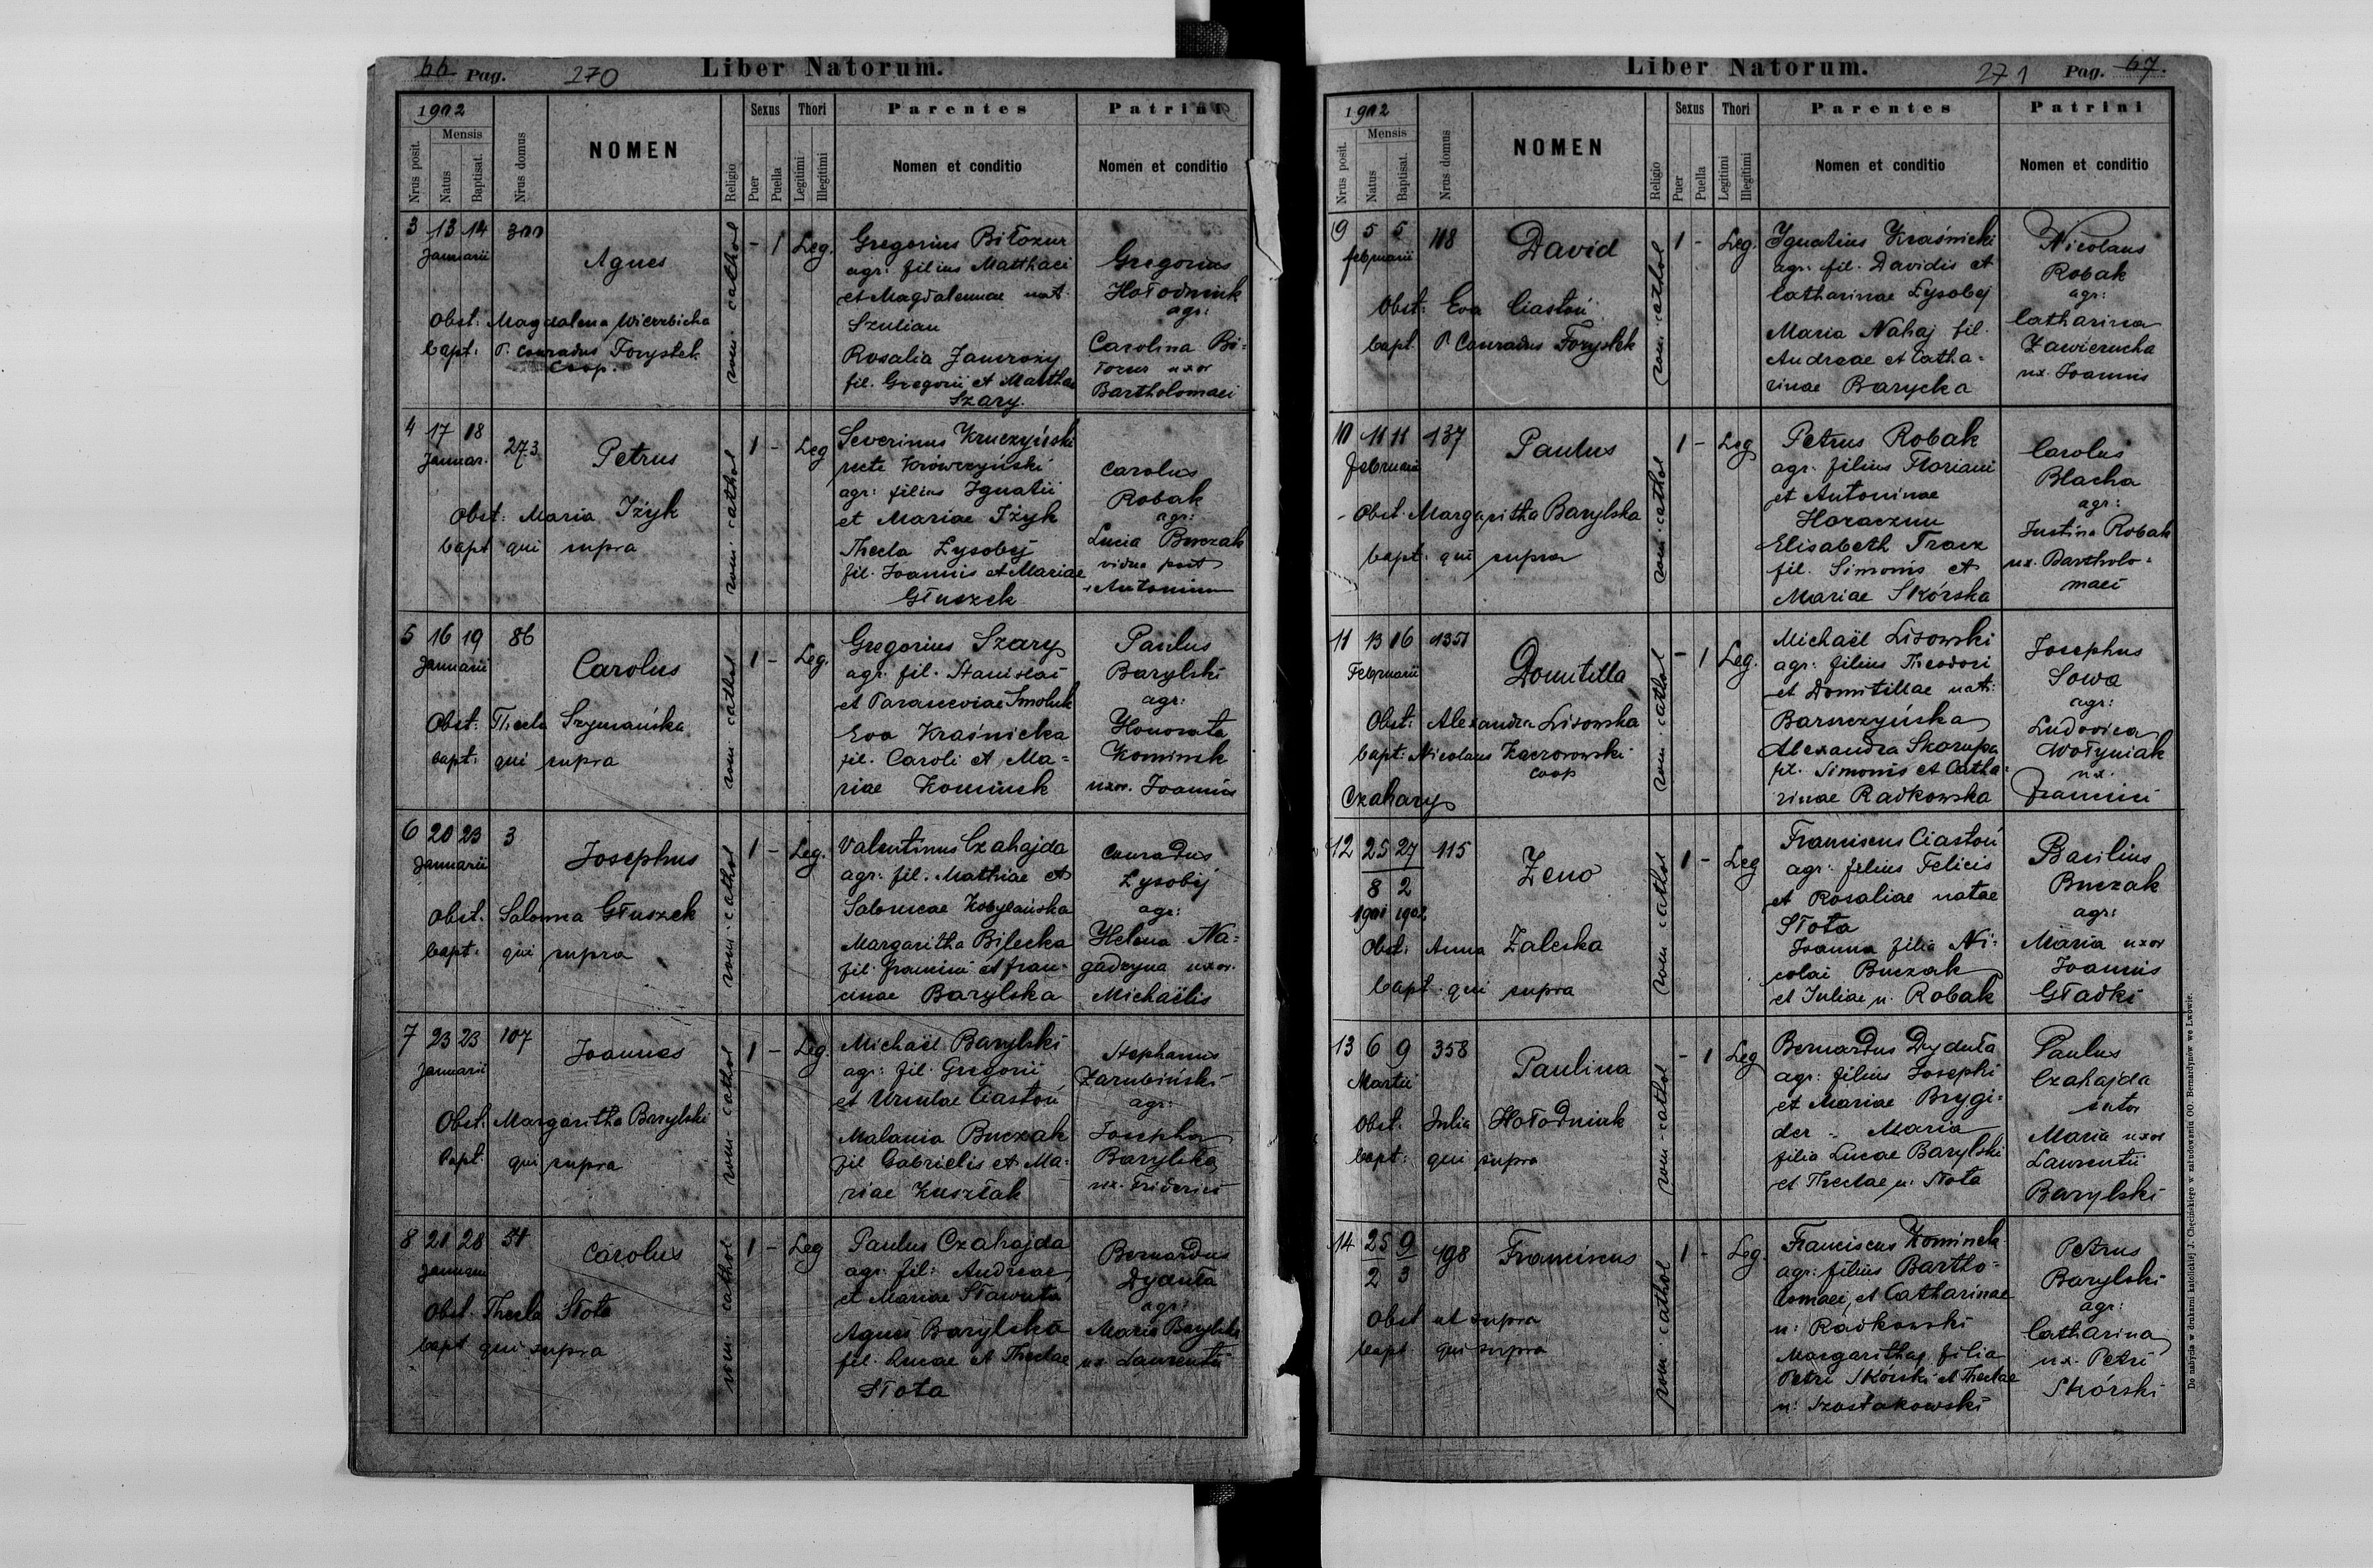 66 Pag. 270 Liber Natorum.
1902
Nrus posit.
Mensis
Natus
Baptisat.
Nrus domus
NOMEN
Religio
Sexus
Puer
Puella
Thori
Legitimi
Illegitimi
Parentes
Nomen et conditio
Patrini
Nomen et conditio
3 13 14 300
Januarii
Agnes
Obst: Magdalena Wierzbicka
bapt: P. Conradus Forystek
Coop.
rom. cathol
- 1 Leg.
Gregorius Biłozur
agr: filius Matthaei
et Magdalenae nat.
Szulian
Rosalia Jamrozy
fil. Gregorii et Marthae
Szary.
Gregorius
Hołodniuk
agr:
Carolina Bi-
łozur uxor
Bartholomaei
4 17 18 273
Januar.
Petrus
Obst: Maria Iżyk
bapt qui supra
rom. cathol
1 - Leg
Severinus Kruczyński
recte Krówczyński
agr: filius Ignatii
et Mariae Iżyk
Thecla Łysobej
fil. Joannis et Mariae
Głuszek
Carolus
Robak
agr:
Lucia Buczak
vidua post
Antonium
5 16 19 86
Januarii
Carolus
Obst: Thecla Szymańska
bapt: qui supra
rom. cathol
1 - Leg.
Gregorius Szary
agr. fil. Stanislai
et Parasceviae Smoluk
Eva Kraśnicka
fil. Caroli et Ma=
riae Kominek
Paulus
Barylski
agr:
Honorata
Kominek
uxor. Joannis
6 20 23 3
Januarii
Josephus
Obst. Salomea Głuszek
bapt: qui supra
rom. cathol
1 - Leg.
Valentinus Czahajda
agr: fil. Mathiae et
Salomeae Kobylańska
Margaritha Bilecka
fil. Francisci et Fran-
cinae Barylska
Conradus
Łysobij
agr:
Helena Na=
gadzyna uxor.
Michaëlis
7 23 23 107
Januarii
Joannes
Obst. Margaritha Barylski
bapt. qui supra
rom. cathol
1 - Leg.
Michaël Barylski
agr: fil. Gregorii
et Ursulae Ciastoń
Malania Buczak
fil Gabrielis et Ma-
riae Kusztak
Stephanus
Zarubiński
agr:
Josepha
Barylska
ux. Friderici
8 21 28 54
Januarii
Carolus
Obst. Thecla Słota
bapt qui supra
rom. cathol
1 - Leg
Paulus Czahajda
agr. fil: Andreae
et Mariae Sławuta
Agnes Barylska
fil. Lucae et Theclae
Słota
Bernardus
Dyduła
agr:
Maria Barylski
ux. Laurentii
Liber Natorum. 271 Pag. 67.
1902
Nrus posit.
Mensis
Natus
Baptisat.
Nrus domus
NOMEN
Religio
Sexus
Puer
Puella
Thori
Legitimi
Illegitimi
Parentes
Nomen et conditio
Patrini
Nomen et conditio
9 5 5 118
februarii
David
Obst: Eva Ciastoń
bapt. P. Conradus Forystek
rom. cathol
1 - Leg.
Ignatius Kraśnicki
agr. fil. Davidis et
Catharinae Łysobej
Maria Nahaj fil.
Andreae et Catha-
rinae Barycka
Nicolaus
Robak
agr:
Catharina
Zawierucha
ux. Joannis
10 11 11 137
februarii
Paulus
Obst. Margaritha Barylska
bapt. qui supra
rom. cathol
1 - Leg
Petrus Robak
agr. filius Floriani
et Antoninae
Horaczuu
Elisabeth Tracz
fil. Simonis et
Mariae Skórska
Carolus
Blacha
agr:
Justina Robak
ux. Bartholo=
maei
11 13 16 1351
Februarii
Domitilla
Obst: Alexandra Lisowska
bapt: Nicolaus Kaczorowski
coop
Czahary
rom. cathol
- 1 Leg.
Michaël Lisowski
agr: filius Theodori
et Domitillae nat:
Barszczyńska
Alexandra Skorupa
fil. Simonis et Catha-
rinae Radkowska
Josephus
Sowa
agr:
Ludovica
Wołyniak
ux.
Francisci
12 25 27 115
8 2
1901 1902
Zeno
Obst: Anna Zaleska
bapt. qui supra
rom cathol
1 - Leg
Franciscus Ciastoń
agr: filius Felicis
et Rosaliae natae
Słota
Joanna filia Ni-
colai Buczak
et Juliae n. Robak
Basilius
Buczak
agr:
Maria uxor
Joannis
Gładki
13 6 9 358
Martii
Paulina
Obst. Julia Hołodniak
bapt: qui supra
rom. cathol
- 1 Leg
Bernardus Dyduła
agr: filius Josephi
et Mariae Brygi-
der - Maria
filia Lucae Barylski
et Theclae n. Słota
Paulus
Czahajda
sutor
Maria uxor
Laurentii
Barylski
14 25 9 198
2 3
Franciscus
Obst ut supra
bapt. qui supra
rom. cathol
1 - Leg.
Franciscus Kominek
agr: filius Bartho-
lomaei, et Catharinae
n: Radkowski
Margaritha filia
Petri Skórski et Theclae
n: Szostakowski
Petrus
Barylski
agr:
Catharina
ux. Petri
Skórski
Do nabycia w drukarni katolickiej J. Chęcińskiego w zabudowaniu OO. Bernardynów we Lwowie.